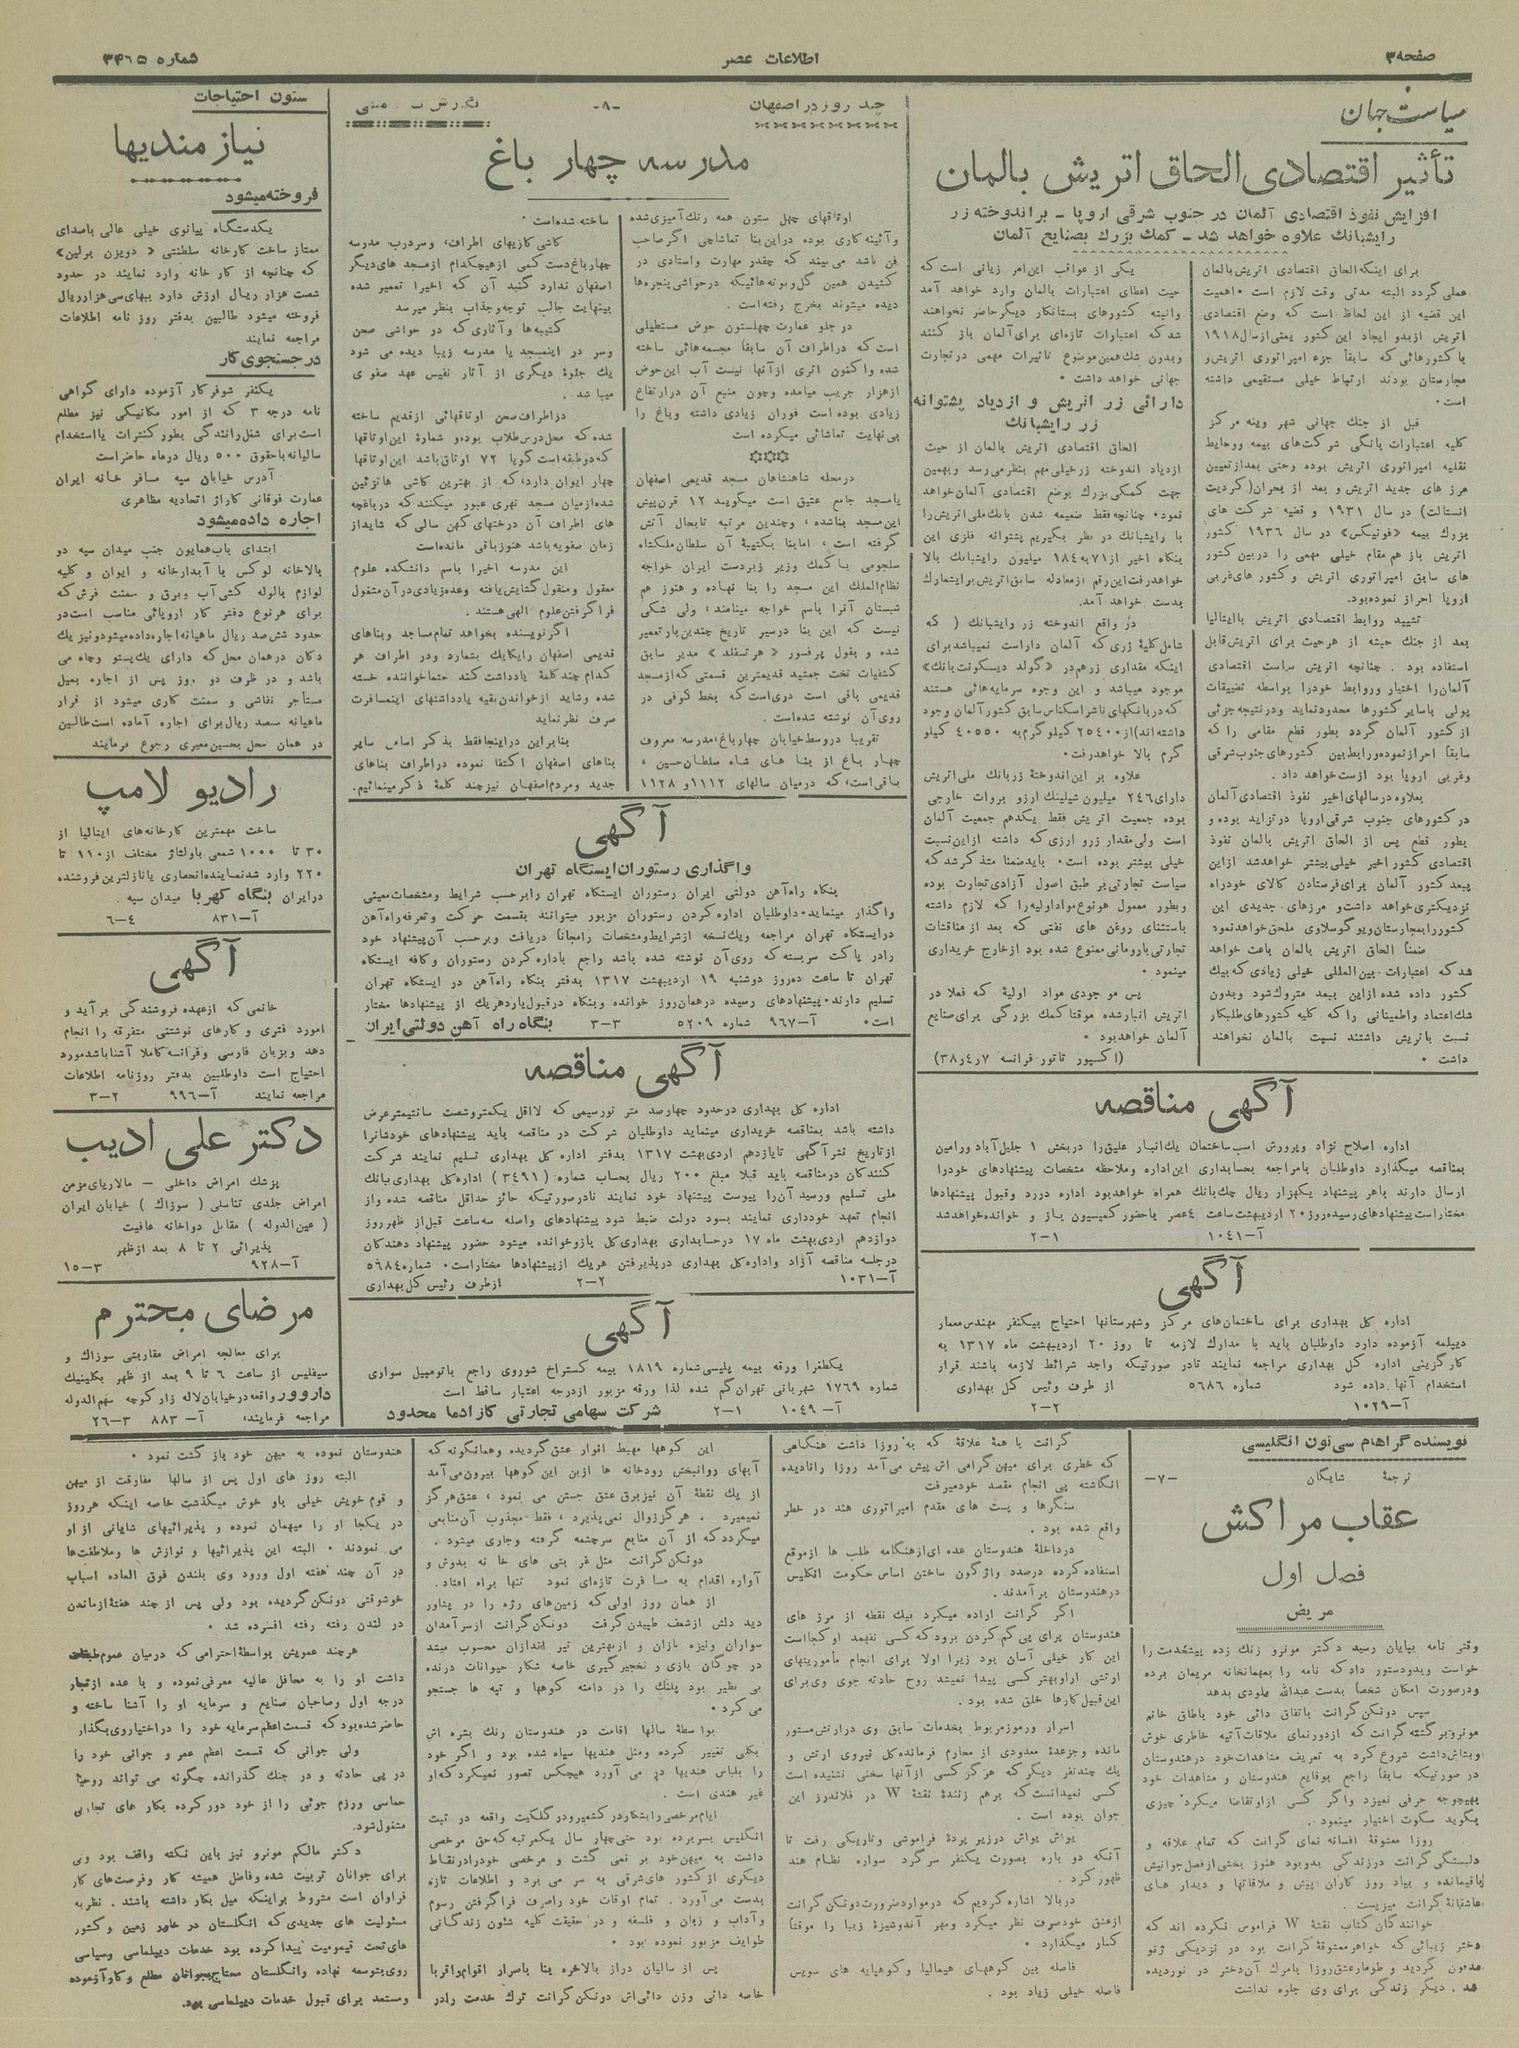 صفحه ۳
اطلاعات عصر
شماره ۳۴۶۵
سیاست جهان
تأثیر اقتصادی الحاق اتریش بالمان
افزایش نفوذ اقتصادی آلمان در جنوب شرقی اروپا ـ براندوخته زر
رایشبانك علاوه خواهد شد ـ كمك بزرك بصنایع آلمان
برای اینكه الحاق اقتصادی اتریش بالمان
عملی گردد البته مدتی وقت لازم است ٠ اهمیت
این قضیه از این لحاظ است كه وضع اقتصادی
اتریش ازبدو ایجاد این كشور یعنی ازسال ۱۹۱۸
با كشورهائی كه سابقاً جزء امپراتوری اتریش و
مجارستان بودند ارتباط خیلی مستقیمی داشته
است ٠
قبل از جنك جهانی شهر وینه مركز
كلیه اعتبارات بانگی شركت‌های بیمه ووحایط
نقلیه امپراتوری اتریش بوده وحتی بعدازتعیین
مرز های جدید اتریش و بعد از بحران(كردیت
انستالت) در سال ۱۹۳۱ و قضیه شركت های
بزرك بیمه «فونیكس» در سال ۱۹۳۶ كشور
اتریش باز هم مقام خیلی مهمی را دربین كشور
های سابق امپراتوری اتریش و كشور های غربی
اروپا احراز نموده بود.
تشیید روابط اقتصادی اتریش باایتالیا
بعد از جنك حبشه از هرحیث برای اتریش قابل
استفاده بود . چنانچه اتریش سیاست اقتصادی
آلمان را اختیار وروابط خودرا بواسطه تضییقات
پولی باسایر كشورها محدودنماید ودرنتیجه جزئی
از كشور آلمان گردد بطور قطع مقامی را كه
سابقاً احرازنموده ورابط بین كشورهای جنوب شرقی
وغربی اروپا بود ازدست خواهد داد .
بعلاوه درسالهای اخیر نفوذ اقتصادی آلمان
دركشورهای جنوب شرقی اروپا درتزاید بوده و
بطور قطع پس از الحاق اتریش بالمان نفوذ
اقتصادی كشور اخیر خیلی بیشتر خواهدشد ازاین
ببعد كشور آلمان برای فرستادن كالای خودراه
نزدیكتری خواهد داشت و مرزهای جدیدی این
كشوررابمجارستان ویوگوسلاوی ملحق خواهدنمود
ضمناً الحاق اتریش بالمان باعث خواهد
شد كه اعتبارات بین‌المللی خیلی زیادی كه بیك
كشور داده شده ازاین ببعد متروك شود وبدون
شك اعتماد واطمینانی را كه كلیه كشورهای طلبكار
نسبت باتریش داشتند نسبت بالمان نخواهند
داشت ٠
یكی از عواقب این امر زیانی است كه
حیث اعطای اعتبارات بالمان وارد خواهد آمد
والبته كشورهای بستانكار دیگرحاضر نخواهند
شد كه اعتبارات تازه‌ای برای آلمان باز كنند
وبدون شك همین موضوع تاثیرات مهمی درتجارت
جهانی خواهد داشت ٠
دارائی زر اتریش و ازدیاد پشتوانه
زر رایشبانك
الحاق اقتصادی اتریش بالمان از حیث
ازدیاد اندوخته زرخیلی مهم بنظرمی رسد وبهمین
جهت كمكی بزرك بوضع اقتصادی آلمان خواهد
نمود ٠ چنانچه فقط ضمیمه شدن بانك ملی اتریش را
با رایشبانك در نظر بگیریم پشتوانه فلزی این
بنگاه اخیر از ۷۱ به ۱۸۴ میلیون رایشبانك بالا
خواهدرفت این رقم ازمعادله سابق اتریش برایشمارك
بدست خواهد آمد.
در واقع اندوخته زر رایشبانك ( كه
شامل كلیهٔ زری كه آلمان داراست نمیباشد برای
اینكه مقداری زرهم در «گولد دیسكونت بانك»
موجود میباشد و این وجوه سرمایه هائی هستند
كه دربانكهای ناشراسكناس سابق كشور آلمان وجود
داشته اند) از ۲۵۴۰۰ كیلو گرم به ۴۰۵۵۰ كیلو
گرم بالا خواهدرفت٠
علاوه بر این اندوختهٔ زربانك ملی اتریش
دارای ۲۴۶ میلیون شیلینك ارز و بروات خارجی
بوده جمعیت اتریش فقط یكدهم جمعیت آلمان
است ولی مقدار زرو ارزی كه داشته ازاین نسبت
خیلی بیشتر بوده است ٠ بایدضمناً متذكرشد كه
سیاست تجارتی بر طبق اصول آزادی تجارت بوده
وبطور معمول هرنوع مواداولیه را كه لازم داشته
باستثنای روغن های نفتی كه بعد از مناقشات
تجارتی بارومانی ممنوع شده بود ازخارج خریداری
مینمود ٠
پس موجودی مواد اولیهٔ كه فعلا در
اتریش انبارشده موقتاً كمك بزرگی برای صنایع
آلمان خواهدبود ٠
(اكسپور تاتور فرانسه ۷ر۴ر۳۸)
چند روز در اصفهان
ـ۸ـ
مدرسه چهار باغ
اوتاقهای چهل ستون همه رنك آمیزی‌شده
وآئینه كاری بوده دراین بنا تماشاچی اگرصاحب
فن باشد می‌بیند كه چقدر مهارت واستادی در
كشیدن همین گل و بوته هائیكه درحواشی پنجره‌ها
دیده میشوند بخرج رفته است ٠
در جلو عمارت چهلستون حوض مستطیلی
است كه دراطراف آن سابقاً مجسمه هائی ساخته
شده واكنون اثری ازآنها نیست آب این حوض
ازهزار جریب میآمده وچون منبع آن درارتفاع
زیادی بوده است فوران زیادی داشته وباغ را
بی نهایت تماشائی میكرده است
درمحله شاهنشاهان مسجد قدیمی اصفهان
یامسجد جامع عتیق است میگویند ۱۲ قرن پیش
این مسجد بناشده ، وچندین مرتبه تابحال آتش
گرفته است ، امابنا بكتیبهٔ آن سلطان ملكشاه
سلجوقی با كمك وزیر زبردست ایران خواجه
نظام‌الملك این مسجد را بنا نهاده و هنوز هم
شبستان آنرا باسم خواجه مینامند ، ولی شكی
نیست كه این بنا درسیر تاریخ چندین بارتعمیر
شده و بقول پرفسور «هرتسفلد» مدیر سابق
كشفیات تخت جمشید قدیمترین قسمتی كه ازمسجد
قدیمی باقی است دری است كه بخط كوفی در
روی آن نوشته شده است.
تقریباً دروسط خیابان چهارباغ ، مدرسه معروف
چهار باغ از بنا های شاه سلطان حسین ،
باقی است، كه درمیان سالهای ۱۱۱۲ و ۱۱۲۸
ساخته شده است ٠
كاشی كاریهای اطراف ، وسردرب مدرسه
چهارباغ دست كمی ازهیچكدام ازمسجد های دیگر
اصفهان ندارد گنبد آن كه اخیراً تعمیر شده
بینهایت جالب توجه وجذاب بنظر میرسد
كتیبه‌ها وآثاری كه در حواشی صحن
وسر در اینمسجد یا مدرسه زیبا دیده می شود
یك جلوهٔ دیگری از آثار نفیس عهد صفوی
میباشد .
دراطراف صحن اوتاقهائی ازقدیم ساخته
شده كه محل درس طلاب بوده و شمارهٔ این اوتاقها
كه دوطبقه است گویا ۷۲ اوتاق باشد این اوتاقها
چهار ایوان دارد، كه از بهترین كاشی هاتزئین
شده ازمیان مسجد نهری عبور میكنند كه درباغچه
های اطراف آن درختهای كهن سالی كه شایداز
زمان صفویه باشد هنوزباقی مانده است
این مدرسه اخیراً باسم دانشكده علوم
معقول ومنقول گشایش یافته وعده زیادی درآن مشغول
فراگرفتن علوم الهی هستند .
اگرنویسنده بخواهد تمام مساجد وبناهای
قدیمی اصفهان رایكایك بشمارد ودر اطراف هر
كدام چند كلمهٔ یادداشت كند حتماً خواننده خسته
شده وشاید ازخواندن بقیه یادداشتهای اینمسافرت
صرف نظر نماید
بنابراین دراینجا فقط بذكر اسامی سایر
بناهای اصفهان اكتفا نموده دراطراف بناهای
جدید ومردم اصفهان نیزچند كلمهٔ ذكرمینمائیم.
آگهی
واگذاری رستوران ایستگاه تهران
بنگاه راه‌آهن دولتی ایران رستوران ایستگاه تهران رابرحسب شرایط ومشخصات معینی
واگذار مینماید ٠ داوطلبان اداره كردن رستوران مزبور میتوانند بقسمت حركت وتعرفه راه‌آهن
درایستگاه تهران مراجعه ویك نسخه ازشرایط ومشخصات رامجاناً دریافت و برحسب آن پیشنهاد خود
رادر پاكت سربسته كه روی آن نوشته شده باشد راجع باداره كردن رستوران وكافه ایستگاه
تهران تا ساعت ده روز دوشنبه ۱۹ اردیبهشت ۱۳۱۷ بدفتر بنگاه راه‌آهن در ایستگاه تهران
تسلیم دارند ٠ پیشنهادهای رسیده درهمان روز خوانده وبنگاه درقبول یاردهریك از پیشنهادها مختار
است ٠
آ-۹۶۷ شماره ۵۲۰۹
۳-۳
بنگاه راه آهن دولتی ایران
آگهی مناقصه
اداره كل بهداری درحدود چهارصد متر تورسیمی كه لااقل یكمتروشصت سانتیمترعرض
داشته باشد بمناقصه خریداری مینماید داوطلبان شركت در مناقصه باید پیشنهادهای خودشانرا
ازتاریخ نشرآگهی تایازدهم اردی بهشت ۱۳۱۷ بدفتر اداره كل بهداری تسلیم نمایند شركت
كنندكان درمناقصه باید قبلا مبلغ ۲۰۰ ریال بحساب شماره (۳۴۹۱) اداره كل بهداری ببانك
ملی تسلیم ورسید آن را پیوست پیشنهاد خود نمایند تادرصورتیكه حائز حداقل مناقصه شده واز
انجام تعهد خودداری نمایند بسود دولت ضبط شود پیشنهادهای واصله سه ساعت قبل از ظهرروز
دوازدهم اردی بهشت ماه ۱۷ درحسابداری بهداری كل بازوخوانده میشود حضور پیشنهاد دهندكان
درجلسه مناقصه آزاد واداره كل بهداری درپذیرفتن هریك ازپیشنهادها مختاراست ٠ شماره ۵۶۸۴
آ-۱۰۳۱
۲-۲
ازطرف رئیس كل بهداری
آگهی
یكطغرا ورقه بیمه پلیسی شماره ۱۸۱۹ بیمه كستراخ شوروی راجع باتومبیل سواری
شماره ۱۷۶۹ شهربانی تهران گم شده لذا ورقه مزبور ازدرجه اعتبار ساقط است
آ-۱۰۴۹
۲-۱
شركت سهامی تجارتی كازادما محدود
آگهی مناقصه
اداره اصلاح نژاد وپرورش اسب ساختمان یك انبار علیق را دربخش ۱ جلیل آباد ورامین
بمناقصه میگذارد داوطلبان بامراجعه بحسابداری این اداره وملاحظه مشخصات پیشنهادهای خودرا
ارسال دارند باهر پیشنهاد یكهزار ریال چك بانك همراه خواهدبود اداره دررد وقبول پیشنهادها
مختاراست پیشنهادهای رسیده روز ۲۰ اردیبهشت ساعت ۴ عصر باحضور كمیسیون باز و خوانده خواهدشد
آ-۱۰۴۱
۲-۱
آگهی
اداره كل بهداری برای ساختمان‌های مركز وشهرستانها احتیاج بیكنفر مهندس معمار
دیپلمه آزموده دارد داوطلبان باید با مدارك لازمه تا روز ۲۰ اردیبهشت ماه ۱۳۱۷ به
كارگزینی اداره كل بهداری مراجعه نمایند تادر صورتیكه واجد شرائط لازمه باشند قرار
استخدام آنها داده شود
شماره ۵۶۸۶
از طرف رئیس كل بهداری
آ-۱۰۲۹
۲-۲
ستون احتیاجات
نیازمندیها
فروخته میشود
یكدستگاه پیانوی خیلی عالی باصدای
ممتاز ساخت كارخانه سلطنتی « دویزن برلین»
كه چنانچه از كار خانه وارد نمایند در حدود
شصت هزار ریال ارزش دارد ببهای سی هزارریال
فروخته میشود طالبین بدفتر روز نامه اطلاعات
مراجعه نمایند
در جستجوی كار
یكنفر شوفركار آزموده دارای گواهی
نامه درجه ۳ كه از امور مكانیكی نیز مطلع
است برای شغل رانندگی بطور كنترات یااستخدام
سالیانه باحقوق ۵۰۰ ریال درماه حاضراست
آدرس خیابان سپه مسافر خانه ایران
عمارت فوقانی كاراژ اتحادیه مظاهری
اجاره داده میشود
ابتدای باب همایون جنب میدان سپه دو
بالاخانه لوكس با آبدارخانه و ایوان و كلیه
لوازم بالوله كشی آب وبرق و سمنت فرش كه
برای هرنوع دفتر كار اروپائی مناسب است در
حدود شش صد ریال ماهیانه اجاره داده میشود و نیز یك
دكان درهمان محل كه دارای یك پستو وچاه می
باشد و در ظرف دو روز پس از اجاره بمیل
مستأجر نقاشی و سمنت كاری میشود از قرار
ماهیانه سصد ریال برای اجاره آماده است طالبین
در همان محل بحسین معیری رجوع فرمایند
رادیو لامپ
ساخت مهمترین كارخانه‌های ایتالیا از
۳۰ تا ۱۰۰۰ شمعی باولتاژ مختلف از ۱۱۰ تا
۲۲۰ وارد شد نماینده انحصاری بانازلترین فروشنده
درایران بنگاه كهربا میدان سپه .
آ-۸۳۱
۶-۴
آگهی
خانمی كه ازعهده فروشندگی برآید و
امورد فتری و كارهای نوشتنی متفرقه را انجام
دهد وبزبان فارسی و فرانسه كاملا آشنا باشد مورد
احتیاج است داوطلبین بدفتر روزنامه اطلاعات
مراجعه نمایند
آ-۹۹۶
۳-۲
دكتر علی ادیب
پزشك امراض داخلی ـ مالاریای مزمن
امراض جلدی تناسلی ( سوزاك ) خیابان ایران
( عین‌الدوله ) مقابل دواخانه عافیت
پذیرائی ۲ تا ۸ بعد ازظهر
آ-۹۲۸
۱۵-۳
مرضای محترم
برای معالجه امراض مقاربتی سوزاك و
سیفلیس از ساعت ۶ تا ۹ بعد از ظهر بكلینیك
داروور واقعه درخیابان لاله زار كوچه سهم الدوله
مراجعه فرمایند،
آ-۸۸۳
۲۶-۳
نویسنده گراهام سی تون انگلیسی
ترجمهٔ شایگان
ـ۷ـ
عقاب مراكش
فصل اول
مریض
وقتی نامه بپایان رسید دكتر مونرو زنك زده پیشخدمت را
خواست وبدودستور داد كه نامه را بمهمانخانه مریمان برده
ودرصورت امكان شخصاً بدست عبدالله ملودی بدهد
سپس دونكن گرانت باتفاق دائی خود باطاق خانم
مونروبرگشته گرانت كه ازدورنمای ملاقات آتیه خاطری خوش
وبشاش داشت شروع كرد به تعریف مشاهدات خود درهندوستان
در صورتیكه سابقاً راجع بوقایع هندوستان و مشاهدات خود
بهیچوجه حرفی نمیزد واگر كسی ازاوتقاضا میكرد چیزی
بگوید سكوت اختیار مینمود .
روزا معشوقهٔ افسانه نمای گرانت كه تمام علاقه و
دلبستگی گرانت درزندگی بدوبود هنوز بخشی ازفصل جوانیش
باقیمانده و بیاد روز كاران پیش و ملاقاتها و دیدار های
عاشقانهٔ گرانت میزیست .
خوانندگان كتاب نقشهٔ W فراموس نكرده اند كه
دختر زیبائی كه خواهر معشوقهٔ گرانت بود در نزدیكی ژنو
مدفون گردید و طومارعشق روزا بامرك آن دختر در نوردیده
شد . دیگر زندگی برای وی جلوه نداشت
گرانت با همهٔ علاقهٔ كه به روزا داشت هنگامی
كه خطری برای میهن گرامی اش پیش می‌آمد روزا رانادیده
انگاشته پی انجام مقصد خودمیرفت
سنگرها و پست های مقدم امپراتوری هند در خطر
واقع شده بود .
درداخلهٔ هندوستان عده‌ای ازهنگامه طلب ها ازموقع
استفاده كرده درصدد واژگون ساختن اساس حكومت انگلیس
درهندوستان برآمدند.
اگر گرانت اراده میكرد بیك نقطه از مرز های
هندوستان برای پی گم كردن برود كه كسی نفهمد او كجاست
این كار خیلی آسان بود زیرا اولا برای انجام مأموریتهای
اوتشی اراوبهتر كسی پیدا نمیشد روح حادثه جوی وی برای
این قبیل كارها خلق شده بود .
اسرار ورموزمربوط بخدمات سابق وی درارتش مستور
مانده وجزعدهٔ معدودی از محارم فرمانده كل نیروی ارتش و
یك چندنفر دیگر كه هر گز كسی از آنها سخنی نشنیده است
كسی نمیدانست كه برهم زنندهٔ نقشهٔ W در فلاندرز این
جوان بوده است .
یواش یواش درزیر پردهٔ فراموشی وتاریكی رفت تا
آنكه دو باره بصورت یكنفر سرگرد سواره نظام هند
ظهور كرد .
دربالا اشاره كردیم كه درمواردضرورت دونكن گرانت
ازعشق خودصرف نظر میكرد ومهر آندوشیزهٔ زیبا را موقتاً
كنار میگذارد ٠
فاصله بین كوههای هیمالیا وكوهپایه های سویس
فاصله خیلی زیاد بود .
این كوهها مهبط انوار عشق گردیده وهمانگونه كه
آبهای روانبخش رودخانه ها ازبن این كوهها بیرون می‌آمد
از یك نقطهٔ آن نیزبرق عشق جستن می نمود ، عشق هرگز
نمیمیرد . هرگززوال نمی‌پذیرد ، فقط مجذوب آن منابعی
میگردد كه از آن منابع سرچشمه گرفته وجاری میشود .
دونكن گرانت مثل غربتی های خانه بدوش و
آواره اقدام به مسافرت تازه‌ای نمود تنها براه افتاد.
از همان روز اولی كه زمین‌های رژه را در پیشاور
دید دلش ازشعف طپیدن گرفت دونكن گرانت ازسرآمدان
سواران ونیزه بازان و ازبهترین تیر اندازان محسوب میشد
در چوگان بازی و نخجیر گیری خاصه شكار حیوانات درنده
بی نظیر بود پلنك را در دامنه كوهها و تپه ها جستجو
می كرد ٠
بواسطهٔ سالها اقامت در هندوستان رنك بشره اش
بكلی تغییر كرده ومثل هندیها سیاه شده بود و اگر خود
را بلباس هندیها در می آورد هیچكس تصور نمیكرد كه او
غیر هندی است .
ایام مرخصی رابشكار در كشمیر ودر گلكیت واقعه در تبت
انگلیس بسربرده بود حتی چهار سال یكمرتبه كه حق مرخصی
داشت به میهن خود بر نمی گشت و مرخصی خودرادرنقاط
دیگری از كشور های شرقی به سر می برد و اطلاعات تازه
بدست می‌آورد . تمام اوقات خود راصرف فراگرفتن رسوم
وآداب و زبان و فلسفه و در حقیقت كلیه شئون زندگانی
طوایف مزبور نموده بود ٠
پس از سالیان دراز بالاخره بنا باصرار اقوام واقربا
خاصه دائی وزن دائی‌اش دونكن گرانت ترك خدمت رادر
هندوستان نموده به میهن خود باز گشت نمود ٠
البته روز های اول پس از سالها مفارقت از میهن
و قوم خویش خیلی باو خوش میگذشت خاصه اینكه هرروز
در یكجا او را میهمان نموده و پذیرائیهای شایانی از او
می نمودند ٠ البته این پذیرائیها و نوازش ها وملاطفت‌ها
در آن چند هفته اول ورود وی بلندن فوق العاده اسباب
خوشوقتی دونكن گردیده بود ولی پس از چند هفتهٔ ازماندن
در لندن رفته رفته افسرده شد ٠
هرچند عمویش بواسطهٔ احترامی كه درمیان عموم طبقات
داشت او را به محافل عالیه معرفی نموده و با عده از تجار
درجه اول وصاحبان صنایع و سرمایه او را آشنا ساخته و
حاضر شده بود كه قسمت اعظم سرمایه خود را دراختیار وی بگذارد
ولی جوانی كه قسمت اعظم عمر و جوانی خود را
در پی حادثه و در جنك گذرانده چگونه می تواند روحیهٔ
حماسی ورزم جوئی را از خود دور كرده بكار های تجارتی
مشغول شود.
دكتر مالكم مونرو نیز باین نكته واقف بود ولی
برای جوانان تربیت شده وفاضل همیشه كار وفرصت‌های كار
فراوان است مشروط براینكه میل بكار داشته باشند . نظر به
مسئولیت های جدیدی كه انگلستان در خاور زمین و كشور
های تحت قیمومیت پیدا كرده بود خدمات دیپلماسی وسیاسی
روی بتوسعه نهاده وانگلستان محتاج بجوانان مطلع وكارآزموده
ومستعد برای قبول خدمات دیپلماسی بود.